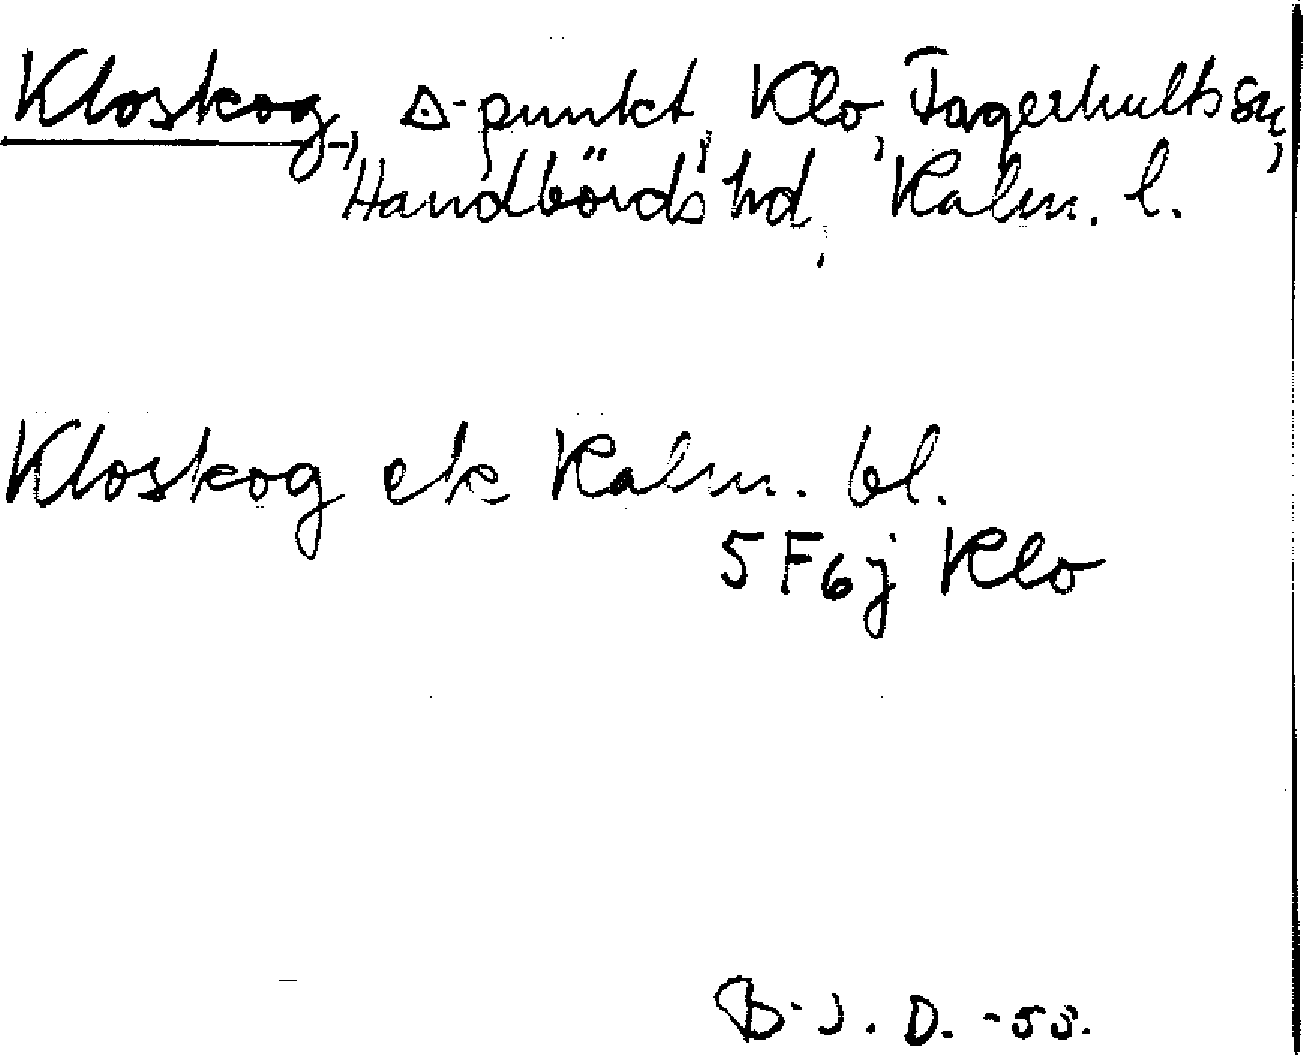 Kloskog, △-punkt, Klo, Fagerhults sn,
Handbörds hd, Kalm. l.
Kloskog ek Kalm. bl.
5 F 6 j Klo
B. J. D. -58.